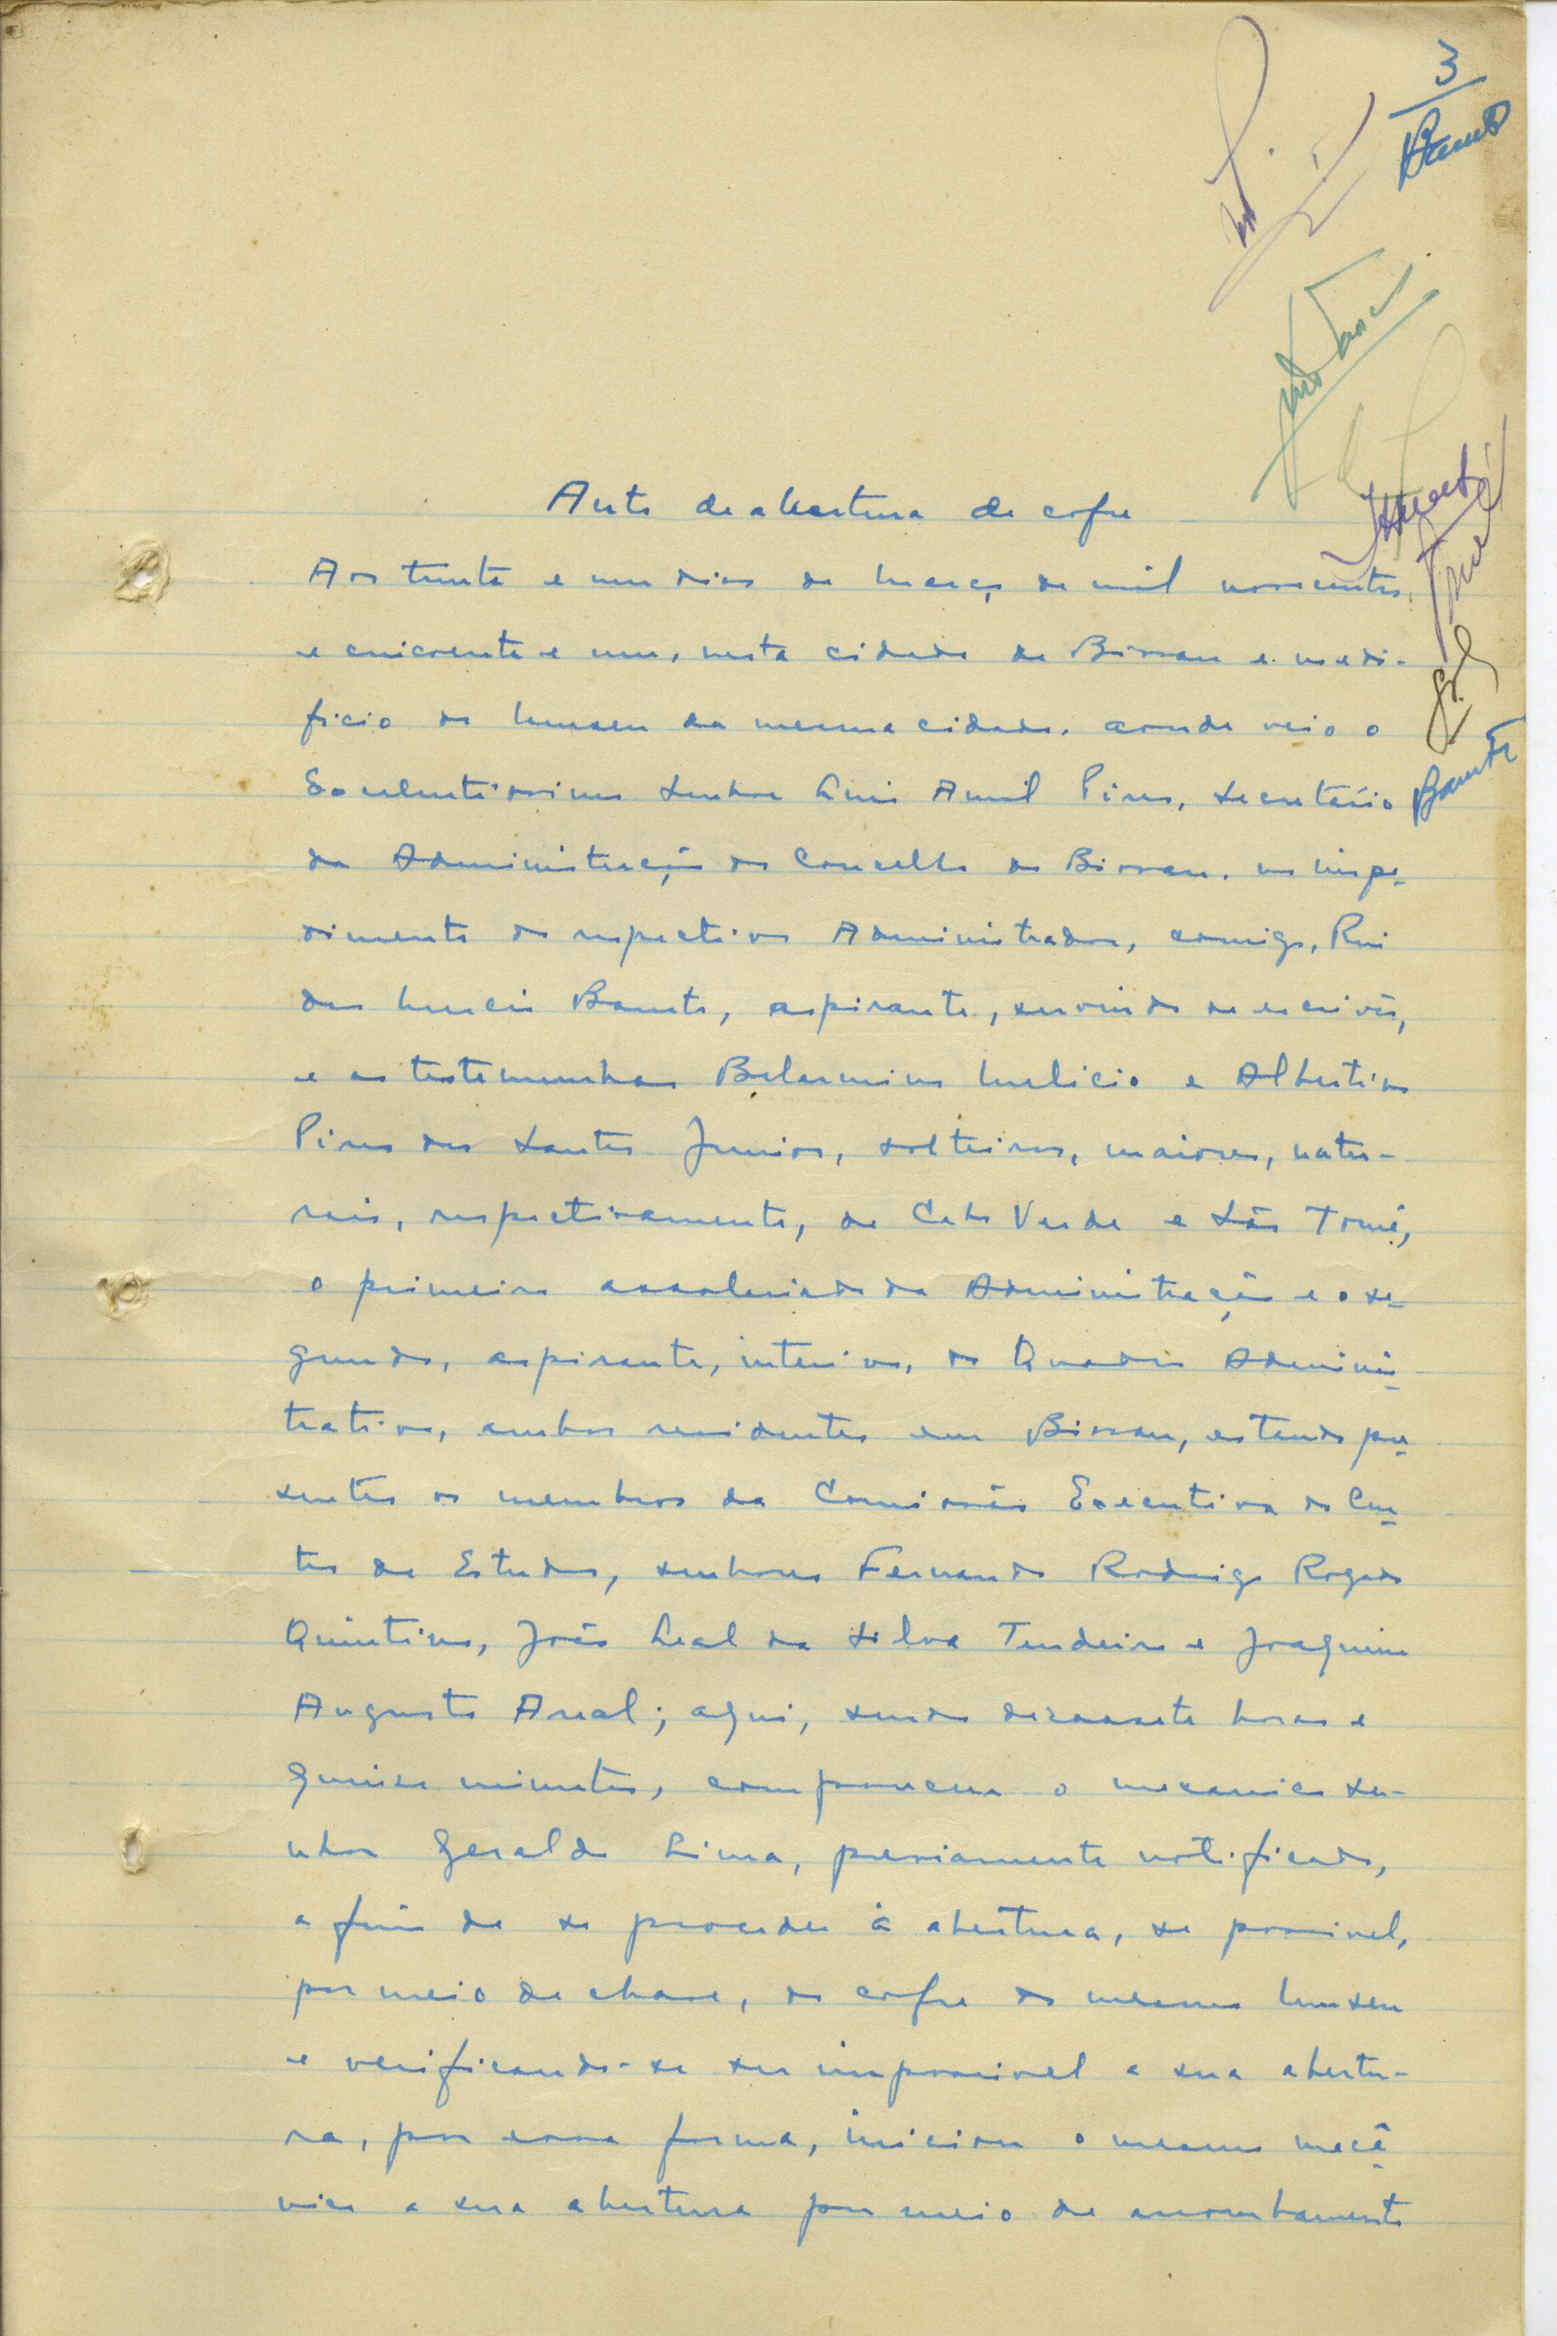 3
Barreto
Auto de abertura de cofre
Aos trinta e um dias de Março de mil novecentos
e cincoenta e um, nesta cidade de Bissau e no edi-
ficio do Museu da mesma cidade, aonde veio o
Excelentissimo Senhor Luis Amil Pires, secretário
da Administração do Concelho de Bissau, no impe-
dimento do respectivo Administrador, comigo, Rui
das Barreto, aspirante, servindo de escrivão,
e as testemunhas Belarmino Melicio e Albertino
Pires dos Santos Junior, solteiros, maiores, natu-
rais, respectivamente, de Cabo Verde e São Tomé,
o primeiro assalariado da Administração e o se-
gundo, aspirante, interino, do Quadro Adminis-
trativo, ambos residentes em Bissau, estando pre-
sentes os membros da Comissão Executiva do Cen-
tro de Estudos, senhores Fernando Rodrigo Rogado
Quintino, João Leal da Silva Tendeiro e Joaquim
Augusto Areal; aqui, sendo dezassete horas e
quinze minutos, compareceu o mecanico se-
nhor Geraldo Lima, previamente notificado,
a fim de se proceder à abertura, se possivel,
por meio de chave, do cofre do mesmo Museu
e verificando-se ser impossivel a sua abertu-
ra, por essa forma, iniciou o mesmo mecâ-
nico a sua abertura por meio de arrombamento